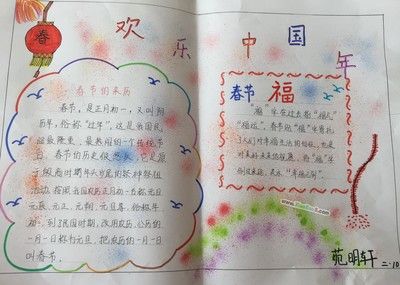 春
欢乐中国年
春节的来历
春节，是正月初一，又叫阴
历年，俗称“过年”。这是我国民
间最隆重、最热闹的一个传统节
日。春节的历史很悠久，它起源
于殷商时期年头岁尾的祭神祭祖
活动。按照我国农历正月初一古称元日
元辰、元正、元朔、元旦等，俗称年
初一，到了民国时期，改用公历，公历的
一月一日称为元旦，把农历的一月一日
叫春节。
春节 福
“福”字在过去指“福气”
“福运”，春节贴“福”字寄托
了人们对幸福生活的向往，也是
对美好未来的祝愿。将“福”字
倒过来贴，表示“幸福已到”。
苑明轩
二.10